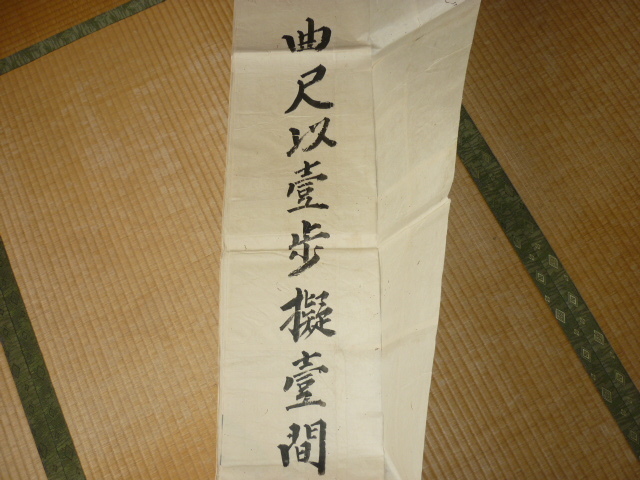 曲尺以壹歩擬壹間